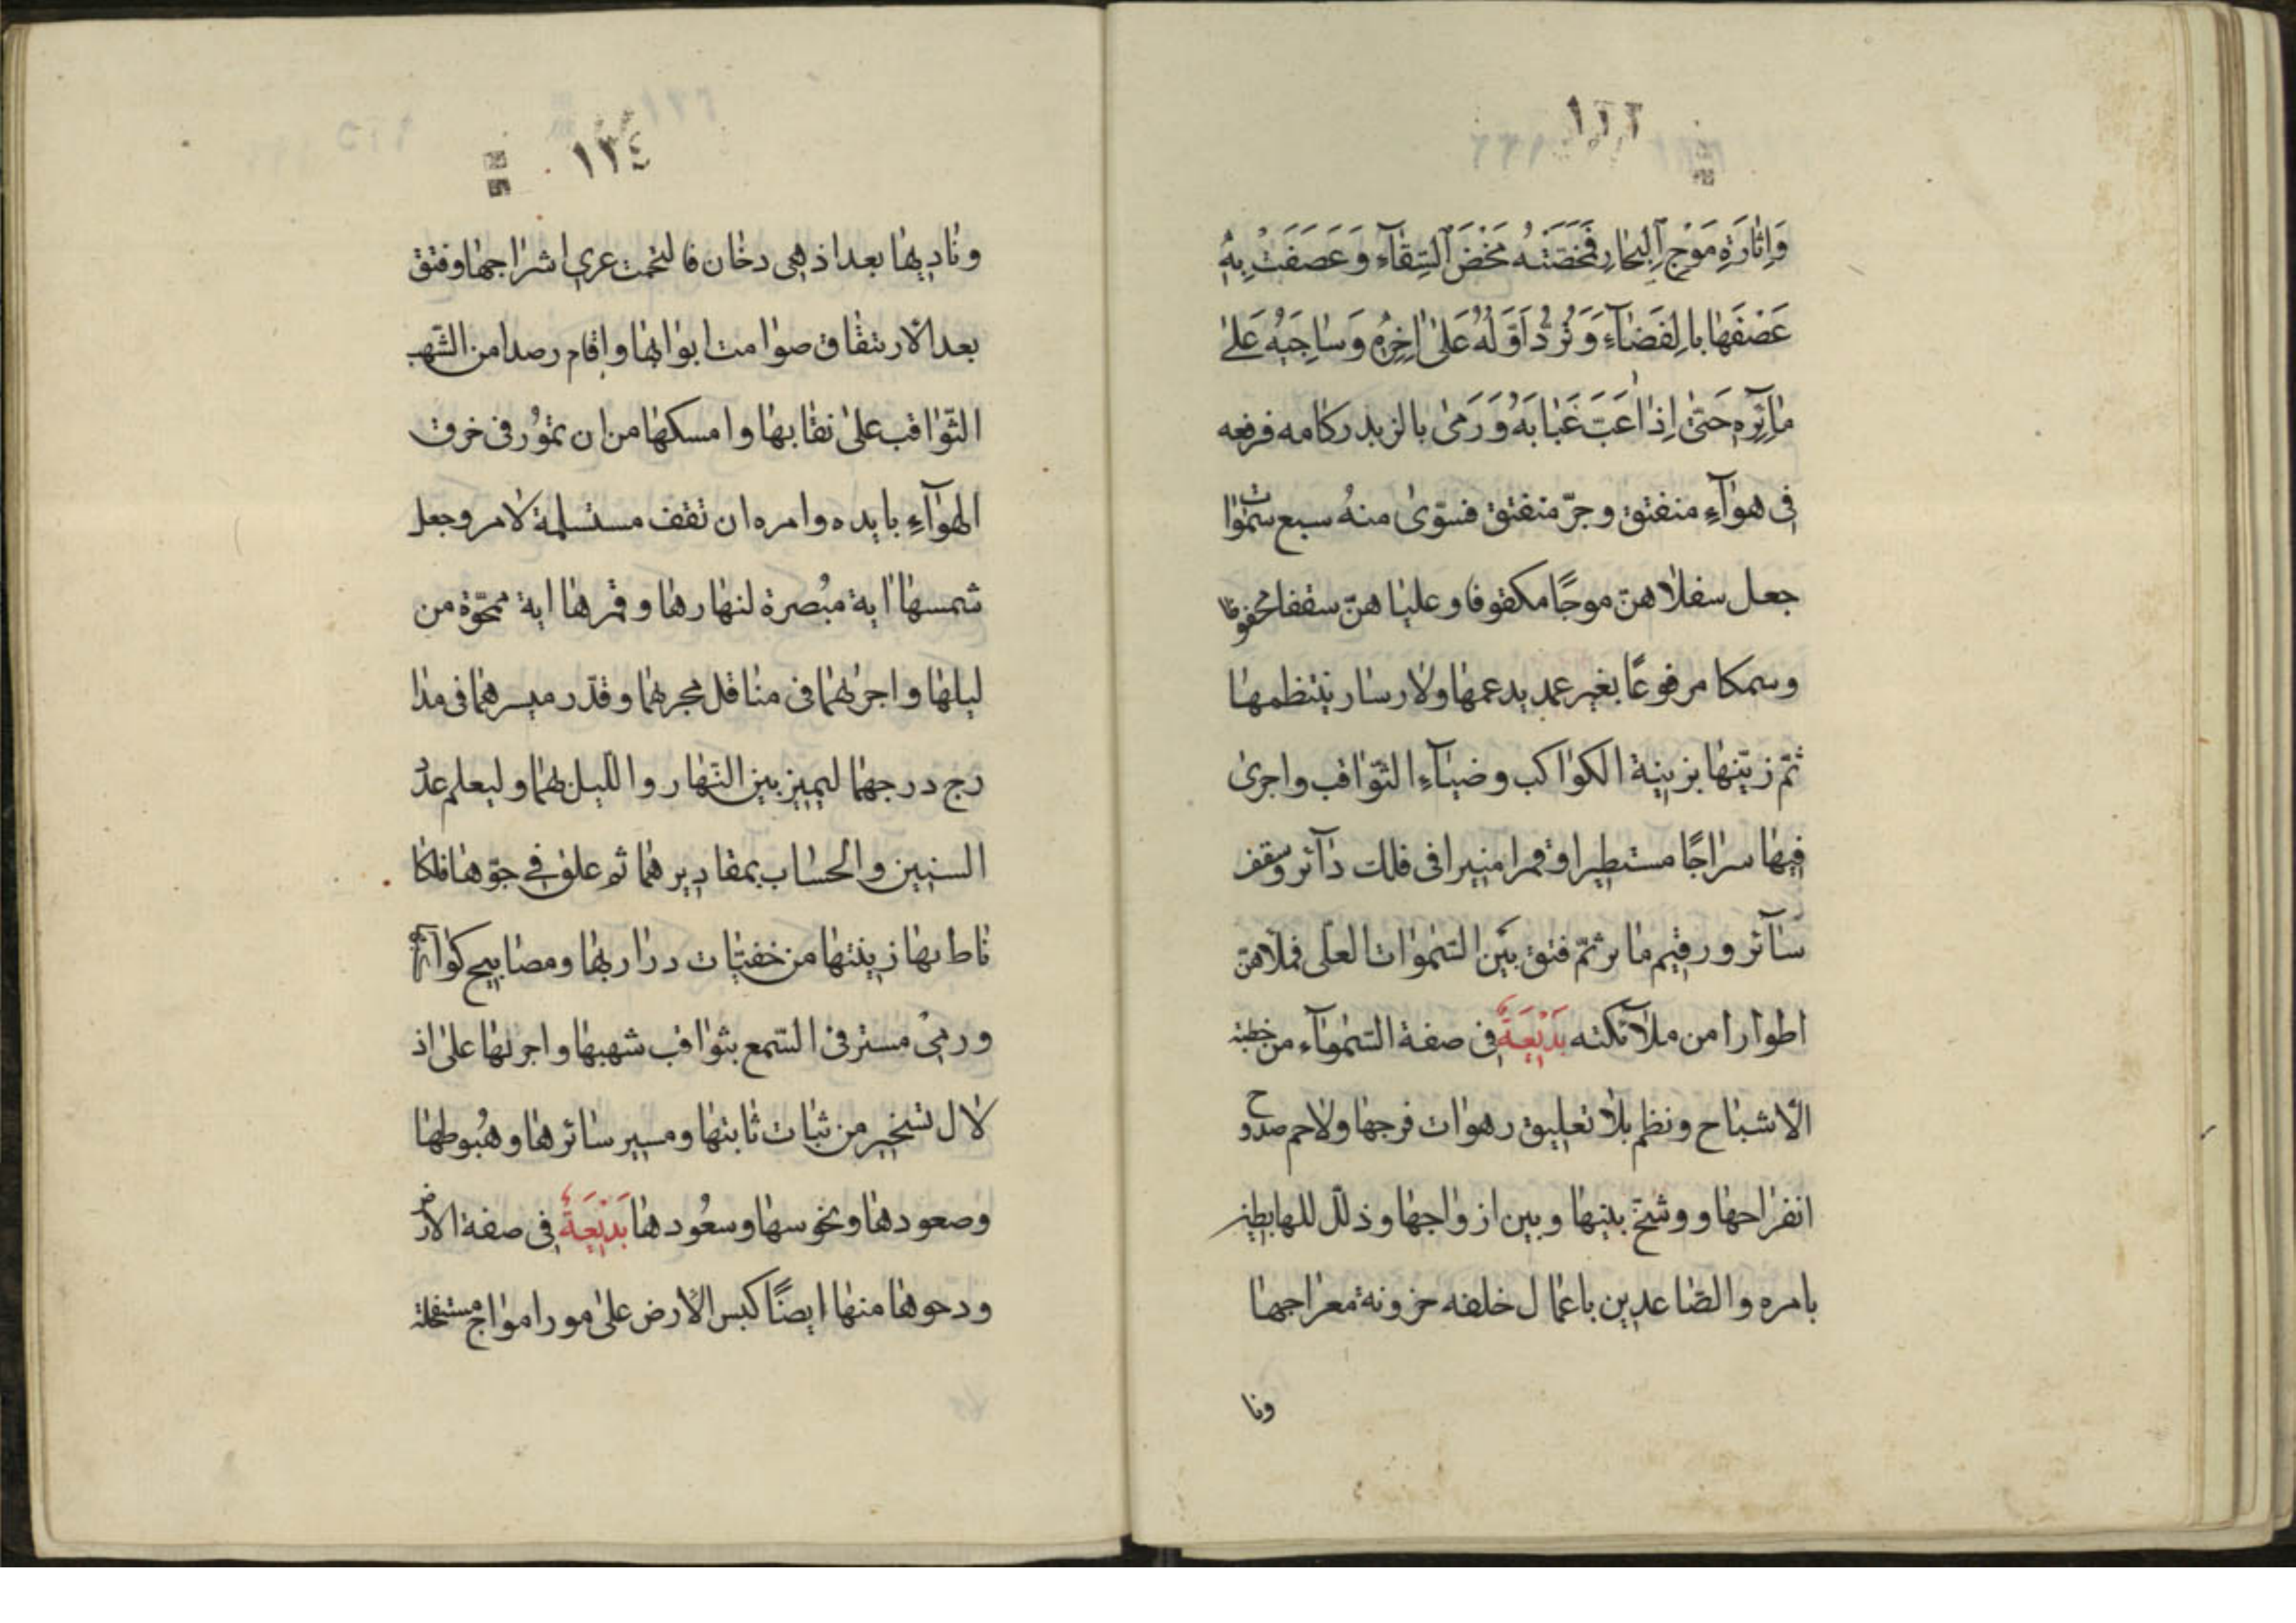 ١٢٣
وَاِثارَةِ مَوْجِ اَلبِحارِ فَمَخَضَتْهُ مَخْضَ اَلسِّقاۤءِ وَعَصَفَتْ بِهِ
عَصْفَهَا بِالفَضاۤءِ وَتَرُدُّ اَوَّلَهُ عَلىٰ اٰخِرِهِ وَساجِيَهُ عَلىٰ
مائِرِهِ حَتّىٰ اِذا عَبَّ عَبابَهُ وَرَمىٰ بالزبد ركامه فرفعه
فى هوآءٍ منفتق وجوّ منفتق فسوّىٰ منهُ سبع سموات
جعل سفلاهنّ موجًا مكفوفا وعلياهنّ سقفا محفوظا
وسمكا مرفوعًا بغير عمد يدعمها ولا رسار ينتظمها
ثمّ زيّنها بزينة الكواكب وضيآءِ الثّواقب واجرىٰ
فيها سراجًا مستطيرا وقمرا منيرا فى فلك دآئر وسقف
سآئر ورقيم مائر ثمّ فتق بَيَن السّموات العلى فملاهنّ
اطوارا من ملآئكته بَدْيَعَةٌ فى صفة السّموآء من خطبة
الاشباح ونظم بلا تعليق رهوات فرجها ولاحم صدوح
انفراجها ووشّج بينها وبين ازواجها وذلّل للهابطين
بامره والصّاعدين باعمال خلقه حزونة معراجها
ونا
١٢٤
وناديها بعد اذ هى دخان فالتحمت عرى اشراجها وفتق
بعد الارتتقاق صوامت ابوابها واقام رصدا من الشّهب
الثّواقب علىٰ نقابها وامسكها من ان تمُور فى خرق
الهوآءِ بايده وامره ان تقف مستسلمة لامر وجعل
شمسها اية مبُصرة لنهارها وقمرها اية ممحّوة من
ليلها واجرىهما فى مناقل مجرىهما وقدّر ميسرهما فى مدا
رج درجهما ليميز بين النّهار والليل بهما وليعلم عدُ
السنين والحساب بمقاديرهما ثم علق فى جوّها فلكا
ناط بها زينتها من خفيّات دراريها ومصابيح كواكبها
ورمىٰ مسترقى السّمع بثواقب شهبها واجرىها علىٰ اذ
لال تسخير من ثبات ثابتها ومسير سائرها وهبُوطها
وصعودها ونحوسها وسعُودها بَدْيَعَةٌ فى صفة الارض
ودحوها منها ايضًا كبس الارض علىٰ مور امواج مستفحلة